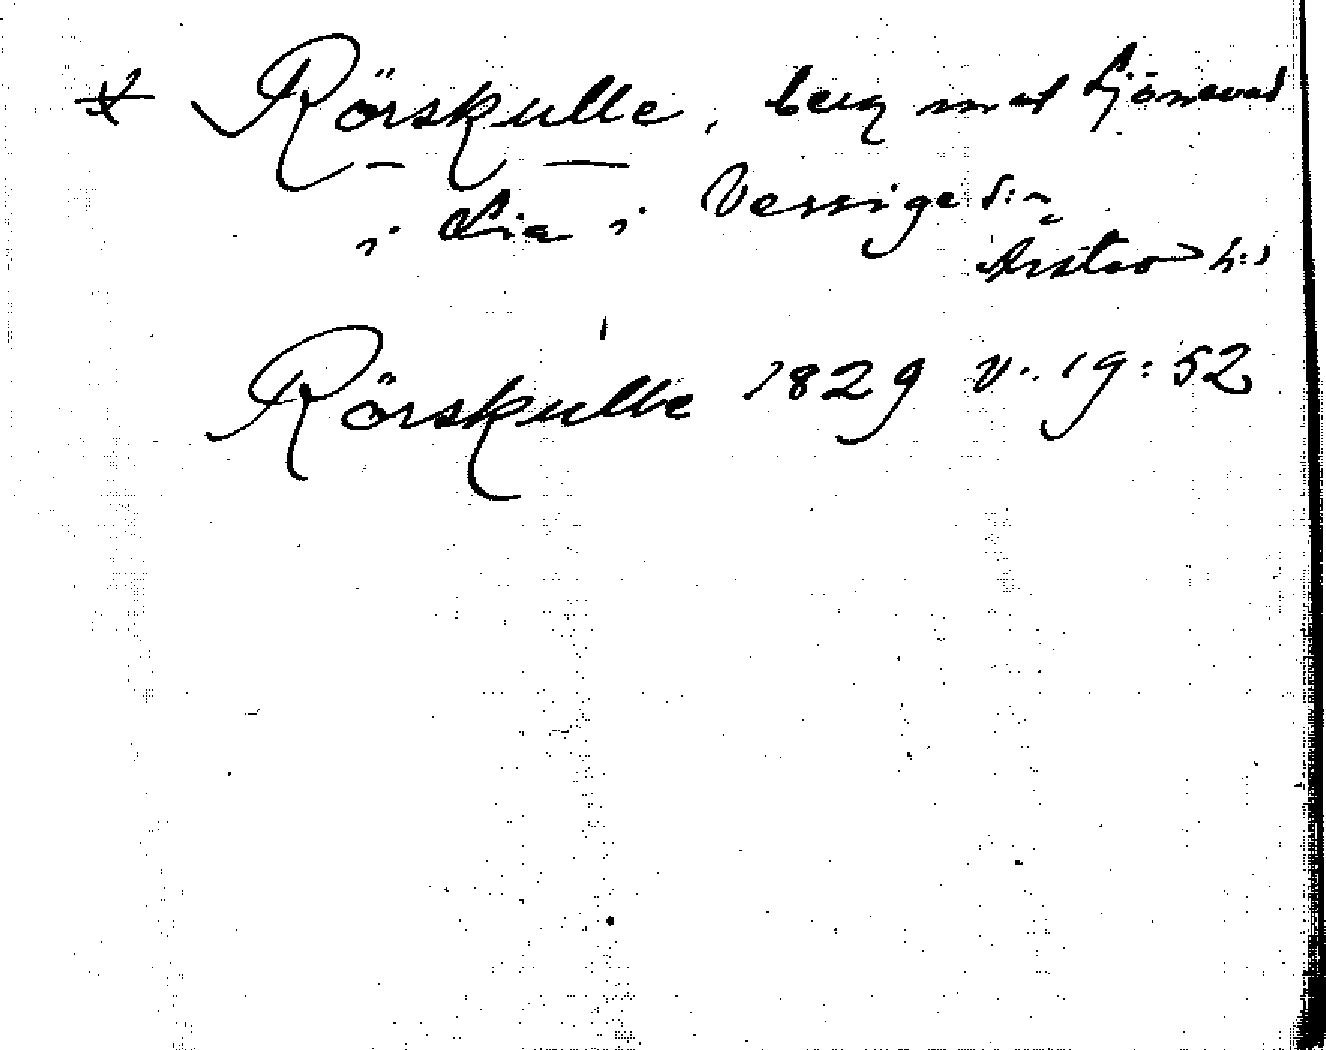 Rörskulle, berg mot Sjönevad
i Lia i Vessige s:n
Årstad h:d
Rörskulle 1829 v. 19:52